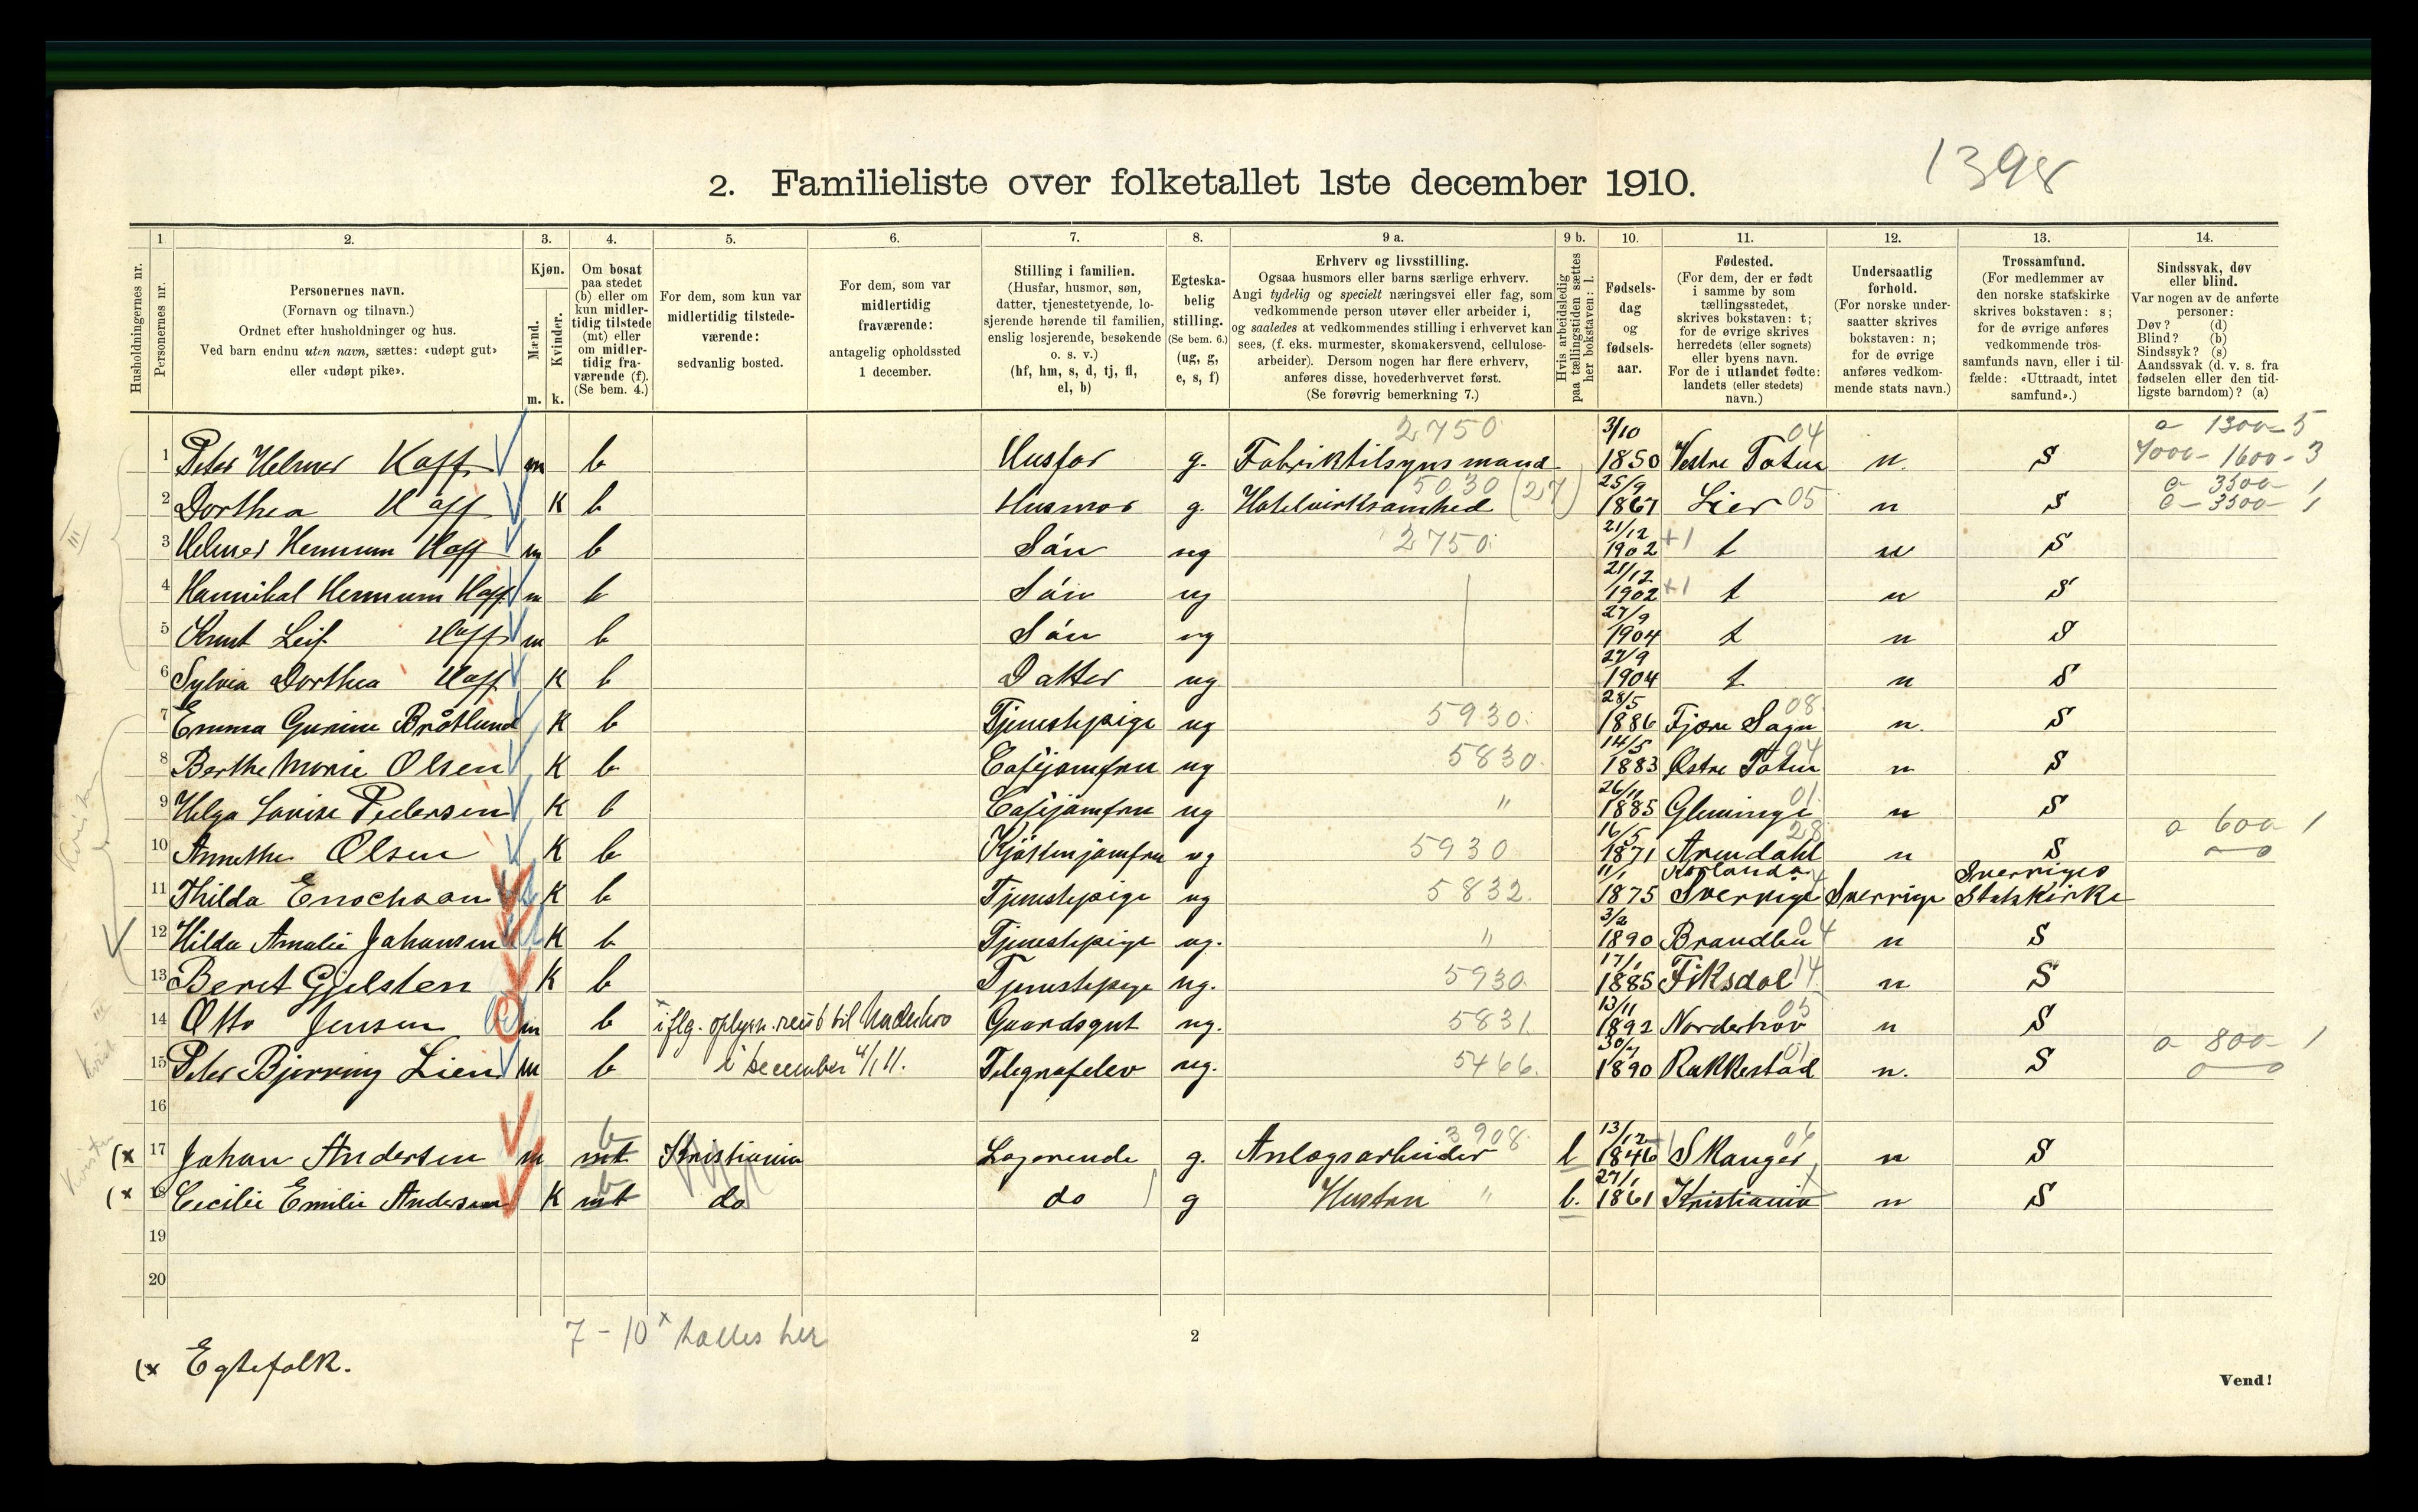 1398
2. Familieliste over folketallet 1ste december 1910.
1. 2. 3. 4. 5. 6. 7. 8. 9 a. 9 b. 10. 11. 12. 13. 14.
Husholdningernes nr.
Personernes nr.
Personernes navn.
(Fornavn og tilnavn.)
Ordnet efter husholdninger og hus.
Ved barn endnu uten navn, sættes: «udøpt gut»
eller «udøpt pike».
Kjøn.
Mænd.
Kvinder.
m. k.
Om bosat
paa stedet
(b) eller om
kun midler-
tidig tilstede
(mt) eller
om midler-
tidig fra-
værende (f).
(Se bem. 4.)
For dem, som kun var
midlertidig tilstede-
værende:
sedvanlig bosted.
For dem, som var
midlertidig
fraværende:
antagelig opholdssted
1 december.
Stilling i familien.
(Husfar, husmor, søn,
datter, tjenestetyende, lo-
sjerende hørende til familien,
enslig losjerende, besøkende
o. s. v.)
(hf, hm, s, d, tj, fl,
el, b)
Egteska-
belig
stilling.
(Se bem. 6.)
(ug, g,
e, s, f)
Erhverv og livsstilling.
Ogsaa husmors eller barns særlige erhverv.
Angi tydelig og specielt næringsvei eller fag, som
vedkommende person utøver eller arbeider i,
og saaledes at vedkommendes stilling i erhvervet kan
sees, (f. eks. murmester, skomakersvend, cellulose-
arbeider). Dersom nogen har flere erhverv,
anføres disse, hovederhvervet først.
(Se forøvrig bemerkning 7.)
Hvis arbeidsledig
paa tællingstiden sættes
her bokstaven: l.
Fødsels-
dag
og
fødsels-
aar.
Fødested.
(For dem, der er født
i samme by som
tællingsstedet,
skrives bokstaven: t;
for de øvrige skrives
herredets (eller sognets)
eller byens navn.
For de i utlandet fødte:
landets (eller stedets)
navn.)
Undersaatlig
forhold.
(For norske under-
saatter skrives
bokstaven: n;
for de øvrige
anføres vedkom-
mende stats navn.)
Trossamfund.
(For medlemmer av
den norske statskirke
skrives bokstaven: s;
for de øvrige anføres
vedkommende tros-
samfunds navn, eller i til-
fælde: «Uttraadt, intet
samfund».)
Sindssvak, døv
eller blind.
Var nogen av de anførte
personer:
Døv? (d)
Blind? (b)
Sindssyk? (s)
Aandssvak (d. v. s. fra
fødselen eller den tid-
ligste barndom)? (a)
2750 3/10 04 a 1300-5
1 Peter Helmer Haff m b Husfar g. Fabriktilsynsmand 1850 Vestre Toten n. S 7000-1600-3
5030 (27) 25/9 a 3500- 1
2 Dorthea Haff K b Husmor g. Hotelvirksomhed 1867 Lier 05 n S 0-3500- 1
21/12
3 Helmer Hennum Haff m b Sön ug 2750 1902 +1 t n S
21/12
4 Hannibal Hennum Haff m b Sön ug 1902 +1 t n S
27/9
5 Knut Leif Haff m b Sön ug 1904 t n S
27/9
6 Sylvia Dorthea Haff K b Datter ug 1904 t n S
28/5 08
7 Emma Gurine Bråtlund K b Tjenestepige ug 5930 1886 Fjære Sogn n. S
14/5 04
8 Berthe Marie Olsen K b Caféjomfru ug 5830 1883 Østre Toten n S
26/11 01
9 Helga Lovise Pedersen K b Caféjomfru ug " 1885 Glemminge n S
16/5 28 a 600 1
10 Annethe Olsen K b Kjökkenjomfru ug 5930 1871 Arendahl n S
11/1 Sverriges
11 Thilda Enochson K b Tjenestepige ug 5832 1875 Sverrige Sverrige Statskirke
3/2
12 Hilda Amalie Johansen K b Tjenestepige ug. " 1890 Brandbu 04 n S
17/1
13 Beret Gjelsten K b Tjenestepige ug. 5930 1885 Fiksdal 14 n S
13/11 05
14 Otto Jensen m b iflg. oplysn. reist til Gaardsgut ug. 5831 1892 Norderhov n S
30/7 01 a 800- 1
15 Peter Bjerring Lien m b i December 4/1 11. Telegrafelev ug. 5466 1890 Rakkestad n. S
16
3908 13/12 06
(x 17 Johan Andersen m mt b Kristiania Logerende g. Anlægsarbeider l 1846 Skauger n S
27/1
(x 18 Cecilie Emilie Andersen K mt b do do g Hustru " b. 1861 Kristiania n S
19
20
7-10 x tælles her
2
(x Egtefolk.
Vend!